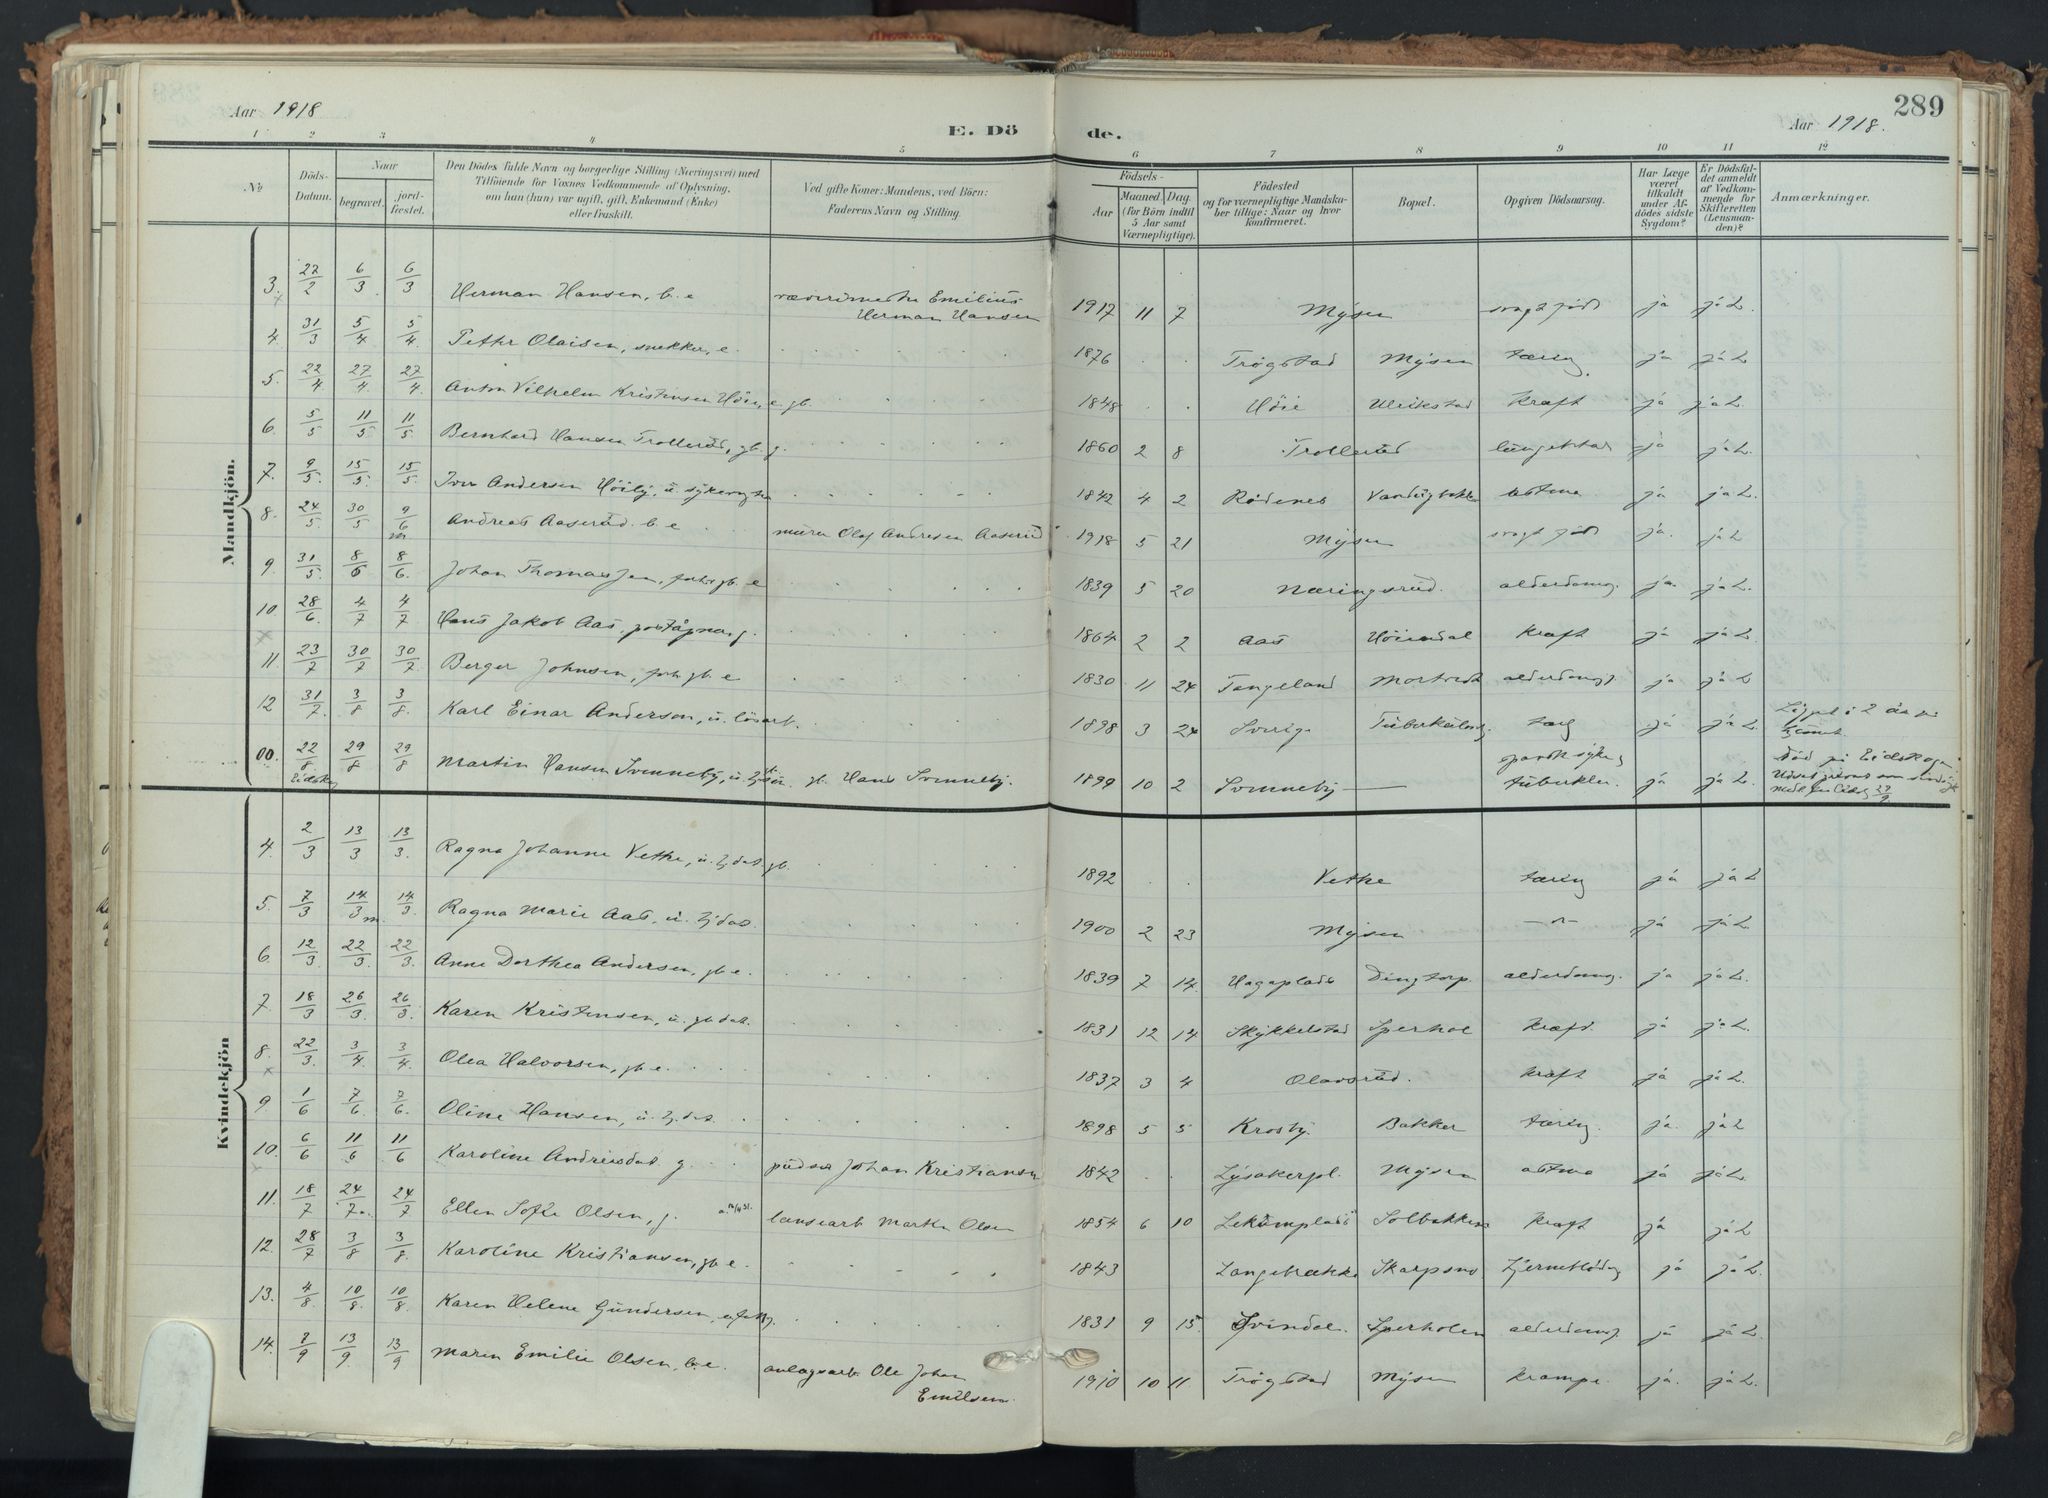 Aar 1918
E. Dö
de.
Aar 1918.
289
1 2 3 4 5 6 7 8 9 10 11 12
No
Döds-Datum.
Naar
begravet.
jord-fæstet.
Den Dödes fulde Navn og borgerlige Stilling (Næringsvei) med
Tilföiende for Voxnes Vedkommende af Oplysning,
om han (hun) var ugift, gift, Enkemand (Enke)
eller fraskilt.
Ved gifte Koner: Mandens, ved Börn:
Faderens Navn og Stilling.
Födsels-
Aar
Maaned.
Dag.
(for Börn indtil
5 Aar samt
Værnepligtige).
Födested
og for værnepligtige Mandska-
ber tillige: Naar og hvor
konfirmeret.
Bopæl.
Opgiven Dödsaarsag.
Har Læge
været
tilkaldt
under Af-
dödes sidste
Sygdom?
Er Dödsfal-
det anmeldt
af Vedkom-
mende for
Skifteretten
(Lensman-
den)?
Anmærkninger.
Mandkjön.
3. 27/2 6/3 6/3 Herman Hansen, b. e Emilius
Herman Hansen 1917 11 7 Mysen svagt født ja ja L.
4. 31/3 5/4 5/4 Petter Olaisen, snekker, e. 1876 Trøgstad Mysen tæring ja ja L
5. 22/4 27/4 27/4 Anton Vilhelm Kristensen Höie, e. gb. 1848 Höie Ulrikstad kræft ja ja L.
6. 5/5 11/5 11/5 Bernhard Hansen Trollerud, gb. g. 1860 2 8 Trollerud ja ja L.
7. 9/5 15/5 15/5 Andersen Höiby, u. 1842 4 2 Rødenes astma ja ja L.
8. 24/5 30/5 9/6 m Andreas Aaserud. b. e murer Olaf Andresen Aaserud 1918 5 21 Mysen svagt født ja. ja L
9. 31/5 8/6 8/6 Johan Thomassen, gb. e 1839 5 20 Næringsrud. alderdomsg. ja. ja L.
10. 28/6 4/7 4/7 Hans Jakob Aas, g. 1864 2 2 Aas Höiendal kræft ja ja L.
11. 23/7 30/7 30/7 Berger Johnsen, gb. e 1830 11 24 Tangeland Mortvedt ja ja L
12 31/7 3/8 3/8 Karl Einar Anderson, u. løsarb. 1898 3 24 Sverige Tuberkulosehj. tæring ja ja L.
00. 22/8 29/8 29/8 Martin Hansen Svenneby, u. gb. Hans Svenneby. 1899 10 2 Svenneby spansk syke, tuberkler. ja ja L. Død på Eidskogen.
Kvindekjön
4. 2/3 13/3 13/3 Ragna Johanne Vetke, u. tj. dat. gb. 1892 Vetke tæring ja ja L
5. 7/3 14/3 m. 14/3 Ragna Marie Aas, u. tj. dat. 1900 2 23 Mysen —"— ja ja L
6. 12/3 22/3 22/3 Anne Dorthea Andersen, gb. e. 1839 7 14 Hagaplads Dingtorp. alderdomsg. ja ja L.
7 18/3 26/3 26/3 Karen Kristensen, u. gb. dat. 1831 12 14 Skykkelstad Sperhol kræft. ja ja L.
8. 22/3 3/4 3/4 Olea Halvorsen, gb. e. 1837 3 4 Olavsrud. kræft ja ja L.
9 1/6 7/6 7/6 Oline Hansen, u. tj. dat. 1898 5 5 Krosby. Bakker tæring. ja. ja L
10. 6/6 11/6 11/6 Karoline Andreisdat. g. pudser Johan Kristiansen 1842 Lysakerpl. Mysen astma ja ja L.
11. 18/7 24/7 24/7 Ellen Sofie Olsen, g. Martin Olsen 1854 6 10 Lekumplads Solbakken kræft ja ja L
12. 28/7 3/8 3/8 Karoline Kristiansen, gb. e. 1843 Langebrække Skarpsno hjerneblödng ja ja L.
13. 4/8 10/8 10/8 Karen Helene Gundersen, 1831 9 15 Svindal. Sperholen alderdomsg. ja ja L.
14. 7/9 13/9 13/9 Maren Emilie Olsen, b. e. anlagsarb. Ole Johan
Emilsen 1910 10 11 Trøgstad Mysen krampe. ja. ja L.